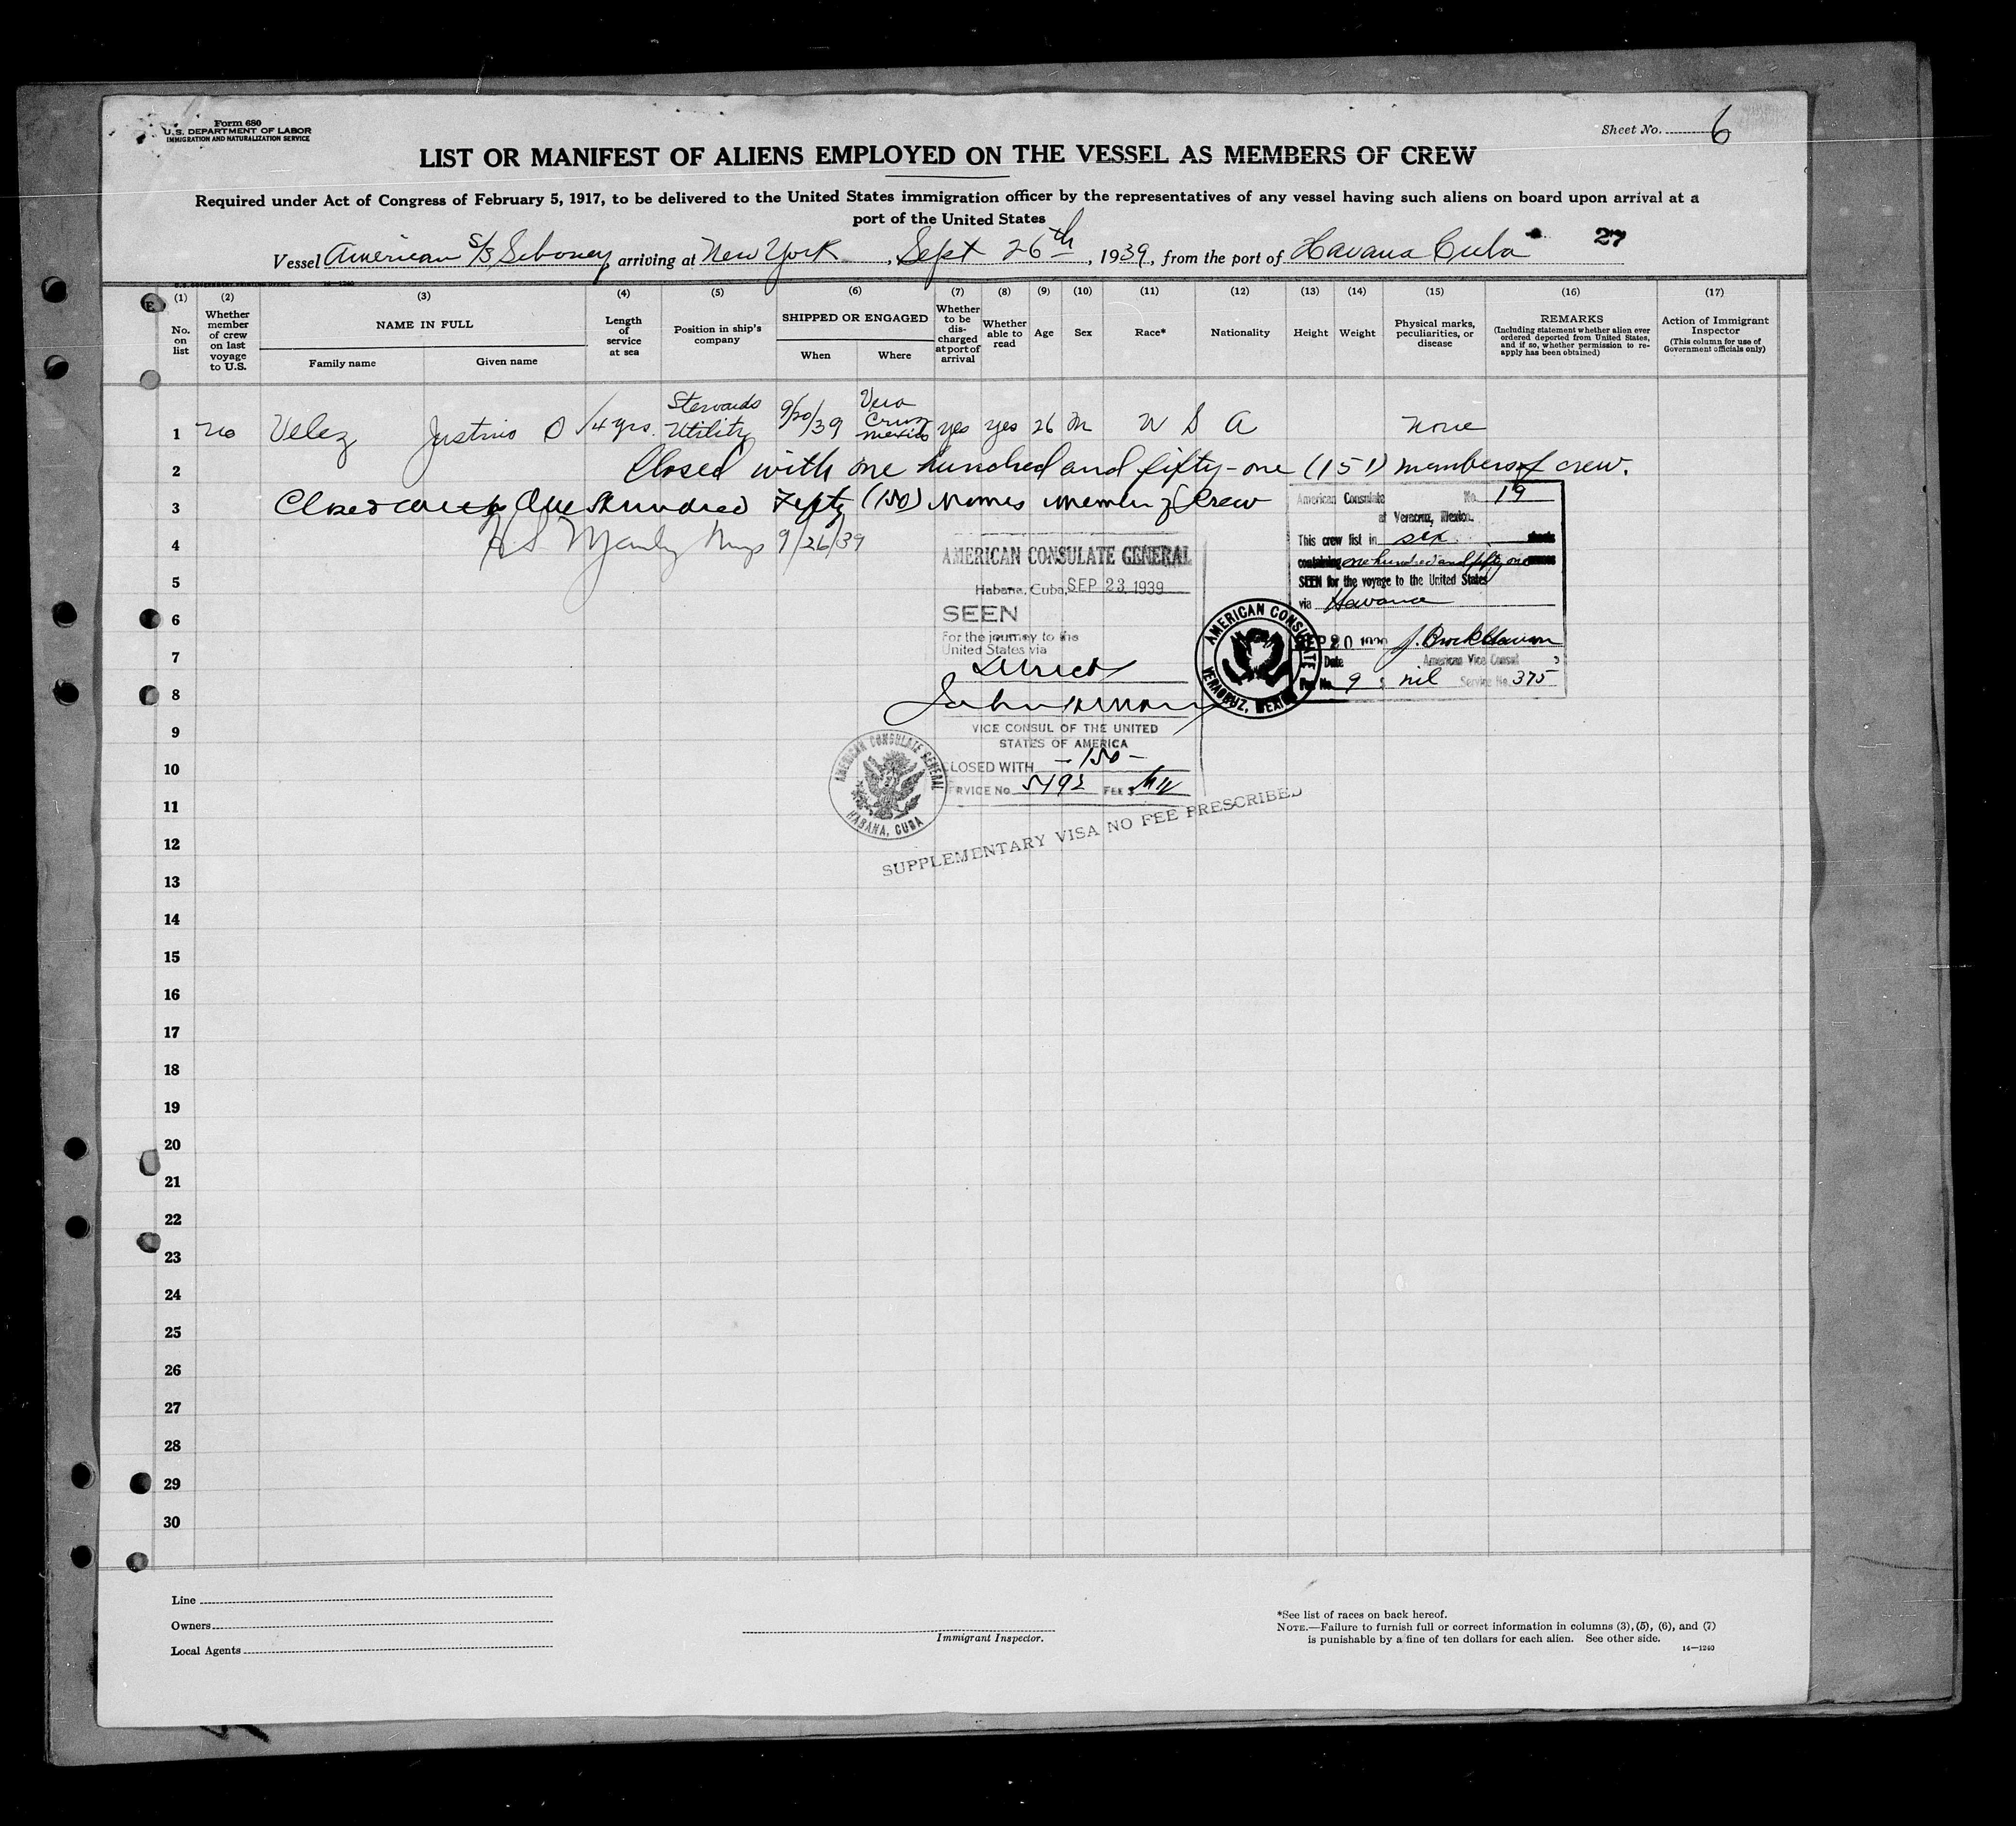 Form 680
U.S. DEPARTMENT OF LABOR
IMMIGRATION AND NATURALIZATION SERVICE
Sheet No. 6
LIST OR MANIFEST OF ALIENS EMPLOYED ON THE VESSEL AS MEMBERS OF CREW
Required under Act of Congress of February 5, 1917, to be delivered to the United States immigration officer by the representatives of any vessel having such aliens on board upon arrival at a
port of the United States
Vessel American S/S Siboney, arriving at New York, Sept 26th, 1939, from the port of Havana Cuba 27
(1) (2) (3) (4) (5) (6) (7) (8) (9) (10) (11) (12) (13) (14) (15) (16) (17)
No. on list
Whether member of crew on last voyage to U.S.
NAME IN FULL
Family name
Given name
Length of service at sea
Position in ship's company
SHIPPED OR ENGAGED
When
Where
Whether to be discharged at port of arrival
Whether able to read
Age
Sex
Race*
Nationality
Height
Weight
Physical marks, peculiarities, or disease
REMARKS
(Including statement whether alien ever ordered deported from United States, and if so, whether permission to reapply has been obtained)
Action of Immigrant Inspector
(This column for use of Government officials only)
1 no Velez Justino O 14 yrs. Stewards Utility 9/20/39 Vera Cruz Mexico yes yes 26 M U S A None
2 Closed with one hundred and fifty-one (151) members of crew.
3 Closed with One Hundred Fifty (150) Names Member of Crew
4 9/26/39
5
6
7
8
9
10
11
12
13
14
15
16
17
18
19
20
21
22
23
24
25
26
27
28
29
30
American Consulate No. 19
at Veracruz, Mexico.
This crew list in six sheets
containing one hundred and fifty one names
SEEN for the voyage to the United States
via Havana
SEP 20 1939
Date
American Vice Consul
Fee No. 9 $ nil Service No. 375
AMERICAN CONSULATE
VERACRUZ, MEXICO
AMERICAN CONSULATE GENERAL
Habana, Cuba, SEP 23 1939
SEEN
For the journey to the
United States via
Direct
VICE CONSUL OF THE UNITED
STATES OF AMERICA
CLOSED WITH -150-
SERVICE No. 5492 FEE $
AMERICAN CONSULATE GENERAL
HABANA, CUBA
SUPPLEMENTARY VISA NO FEE PRESCRIBED
Line
Owners
Local Agents
Immigrant Inspector.
*See list of races on back hereof.
NOTE.—Failure to furnish full or correct information in columns (3), (5), (6), and (7)
is punishable by a fine of ten dollars for each alien. See other side.
14—1240